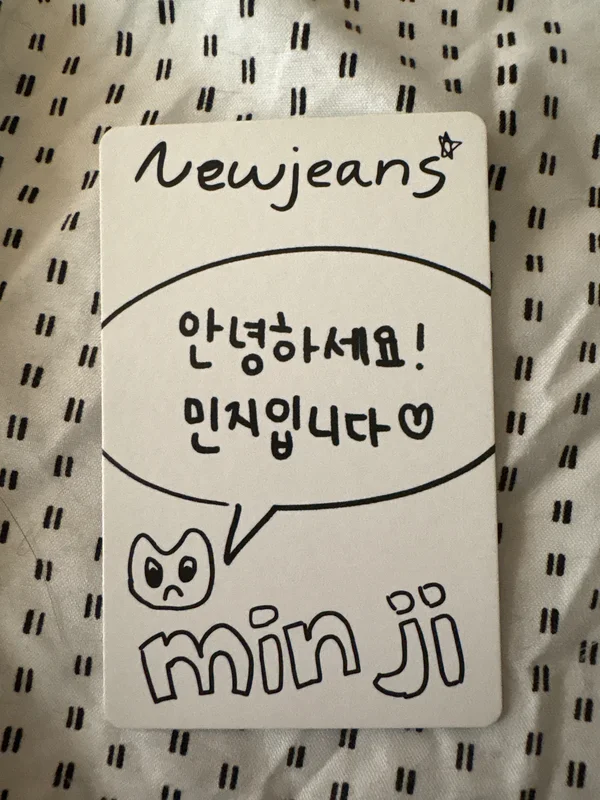 Newjeans
안녕하세요!
민지입니다♡
min ji